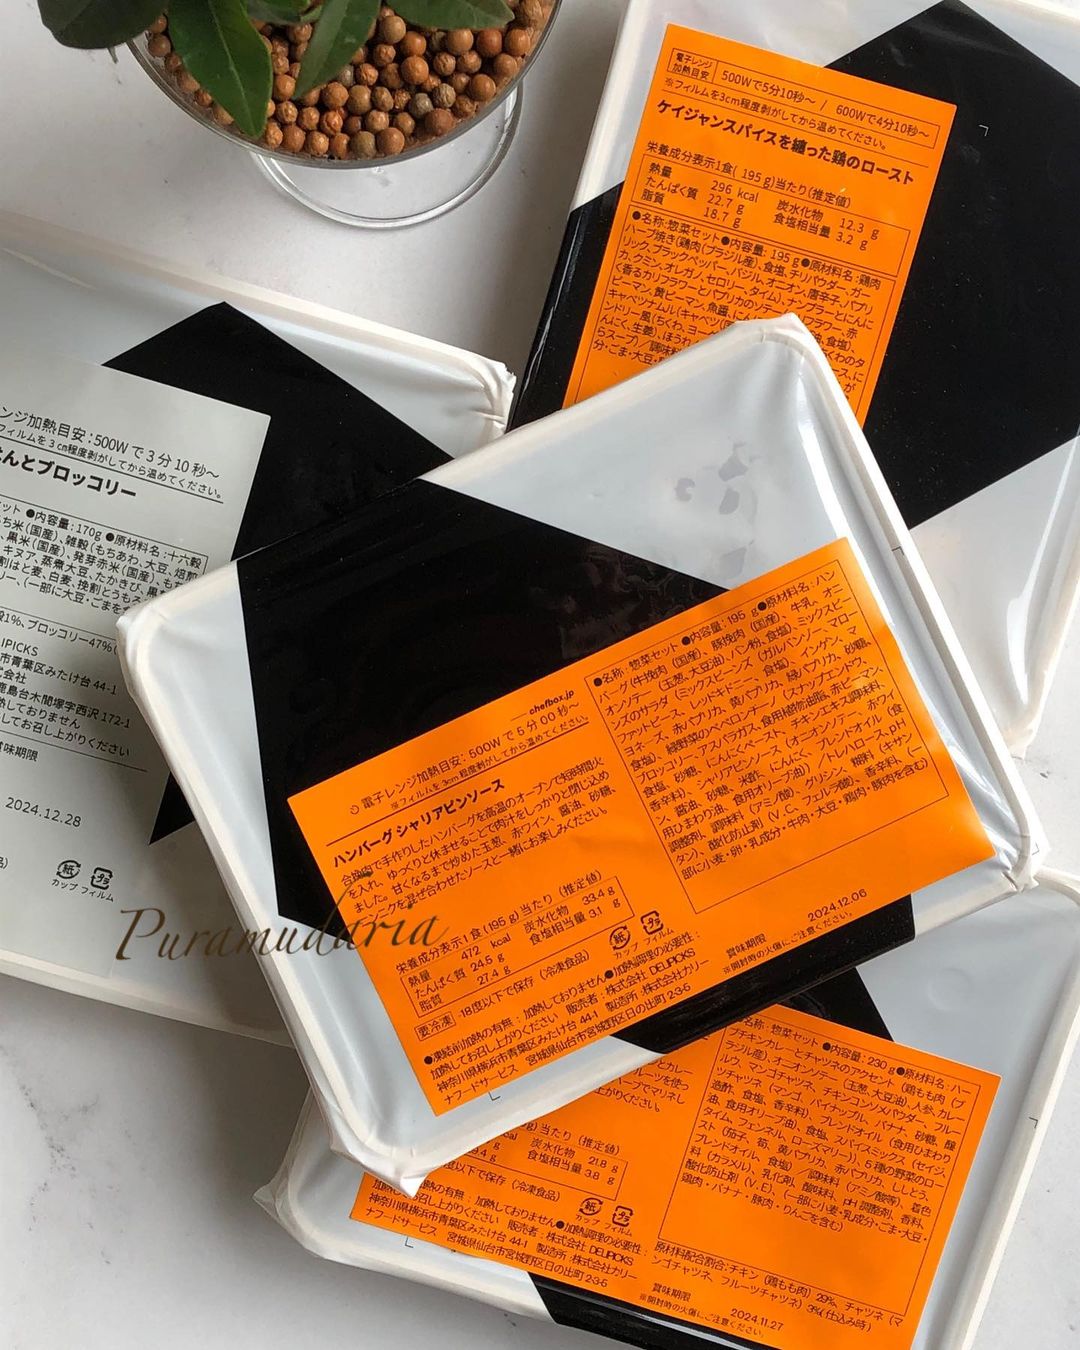 電子レンジ
加熱目安
500Wで5分10秒～ / 600Wで4分10秒～
※フィルムを3cm程度剥がしてから温めてください。
ケイジャンスパイスを纏った鶏のロースト
栄養成分表示1食( 195 g)当たり(推定値)
熱量 296 kcal 炭水化物 12.3 g
たんぱく質 22.7 g 食塩相当量 3.2 g
脂質 18.7 g
●名称:惣菜セット●内容量: 195 g●原材料名:鶏肉
ハーブ焼き(鶏肉(ブラジル産)、食塩、チリパウダー、ガー
リック、ブラックペッパー、バジル、オニオン、唐辛子、パプリ
カ、クミン、オレガノ、セロリー、タイム)、ナンプラーとにんに
く香るカリフラワーとパプリカのソテー
ピーマン、黄ピーマン、魚醤、にん
キャベツナムル(キャベツ
ンドリー風(ちくわ、ヨー
んにく、生姜)、ほうれ
らスープ)/調味料
分・ごま・大豆・
ンジ加熱目安:500W で 3 分 10 秒～
フィルムを 3 cm程度剥がしてから温めてください。
んとブロッコリー
ット ●内容量:170g ●原材料名:十六穀
ち米(国産)、雑穀(もちあわ、大豆、焙煎
、黒米(国産)、発芽赤米(国産)、もち
キヌア、蒸煮大豆、たかきび、黒
割はと麦、白麦、挽割とうもろ
リー、(一部に大豆・ごまを
穀1%、ブロッコリー47%
IPICKS
市青葉区みたけ台 44-1
式会社
鹿島台木間塚字西沢 172-1
熱しておりません
してお召し上がりください
賞味期限
2024.12.28
紙
カップ
プラ
フィルム
chefbox.jp
電子レンジ加熱目安: 500W で 5 分 00 秒～
※フィルムを3cm程度剥がしてから温めてください。
ハンバーグ シャリアピンソース
合挽肉で手作りしたハンバーグを高温のオーブンで短時間火
を入れ、ゆっくりと休ませることで肉汁をしっかりと閉じ込め
ました。甘くなるまで炒めた玉葱、赤ワイン、醤油、砂糖、
ガーリックを混ぜ合わせたソースと一緒にお楽しみください。
栄養成分表示 1 食 (195 g) 当たり (推定値)
熱量 472 kcal 炭水化物 33.4 g
たんぱく質 24.5 g 食塩相当量 3.1 g
脂質 27.4 g
要冷凍 -18度以下で保存 (冷凍食品)
紙
カップ
プラ
フィルム
●凍結前加熱の有無:加熱しておりません●加熱調理の必要性:
加熱してお召し上がりください 販売者:株式会社 DELIPICKS
神奈川県横浜市青葉区みたけ台 44-1 製造所:株式会社カリー
ナフードサービス 宮城県仙台市宮城野区日の出町 2-3-6
●名称:惣菜セット●内容量:195 g●原材料名:ハン
バーグ (牛挽肉 (国産)、豚挽肉 (国産)、牛乳、オニ
オンソテー (玉葱、大豆油)、パン粉、食塩)、ミックスビー
ンズのサラダ (ミックスビーンズ (ガルバンゾー、マロー
ファットピース、レッドキドニー、食塩)、インゲン、マ
ヨネーズ、赤パプリカ、黄パプリカ、緑パプリカ、砂糖、
食塩)、緑野菜のペペロンチーノ (スナップエンドウ、
ブロッコリー、アスパラガス、食用植物油脂、赤ピーマン、
食塩、砂糖、にんにくペースト、チキンエキス調味料、
香辛料)、シャリアピンソース (オニオンソテー、赤ワイ
ン、醤油、砂糖、米酢、にんにく、ブレンドオイル (食
用ひまわり油、食用オリーブ油)) / トレハロース、pH
調整剤、調味料 (アミノ酸)、グリシン、糊料 (キサン
タン)、酸化防止剤 (V.C、フェルラ酸)、香辛料、(一
部に小麦・卵・乳成分・牛肉・大豆・鶏肉・豚肉を含む)
2024.12.06
賞味期限
※開封時の火傷にご注意ください。
Puramudaria
とカレー
ルーツを使っ
ーブでマリネし
上がりください。
g) 当たり (推定値)
kcal 炭水化物 21.8 g
g 食塩相当量 3.8 g
.4 g
度以下で保存 (冷凍食品)
紙
カップ
プラ
フィルム
熱の有無:加熱しておりません●加熱調理の必要性:
加熱してお召し上がりください 販売者:株式会社 DELIPICKS
神奈川県横浜市青葉区みたけ台 44-1 製造所:株式会社カリー
ナフードサービス 宮城県仙台市宮城野区日の出町 2-3-6
名称:惣菜セット ●内容量:230 g●原材料名:ハー
ブチキンカレーとチャツネのアクセント (鶏もも肉 (ブ
ラジル産)、オニオンソテー (玉葱、大豆油)、人参、カレー
ルウ、マンゴチャツネ、チキンコンソメパウダー、フルー
ツチャツネ (マンゴ、パイナップル、バナナ、砂糖、醸
造酢、食塩、香辛料)、ブレンドオイル (食用ひまわり
油、食用オリーブ油)、食塩、スパイスミックス (セイジ、
タイム、フェンネル、ローズマリー))、5 種の野菜のロー
スト (茄子、筍、黄パプリカ、赤パプリカ、ししとう、
ブレンドオイル、食塩) / 調味料 (アミノ酸等)、着色
料 (カラメル)、乳化剤、酸味料、pH 調整剤、香料、
酸化防止剤 (V.E)、(一部に小麦・乳成分・ごま・大豆・
鶏肉・バナナ・豚肉・りんごを含む)
原材料配合割合:チキン (鶏もも肉) 29%、チャツネ (マ
ンゴチャツネ、フルーツチャツネ) 3%(仕込み時)
賞味期限
2024.11.27
※開封時の火傷にご注意ください。